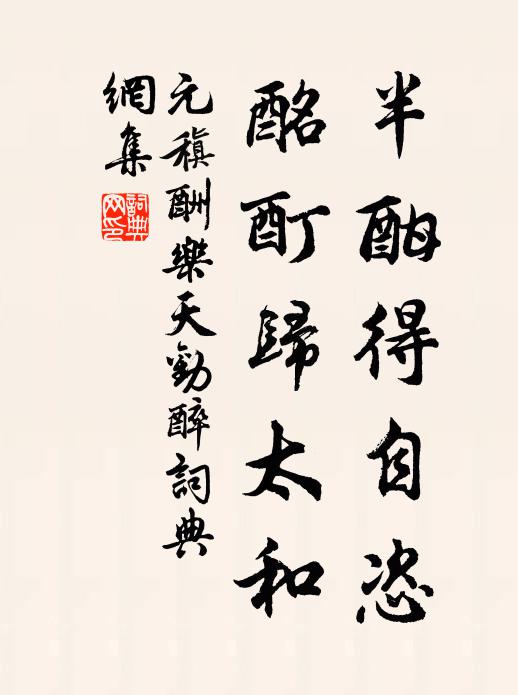 半酣得自恣
酩酊歸太和
元稹酬樂天勸醉詞典
網集
詞典
网印